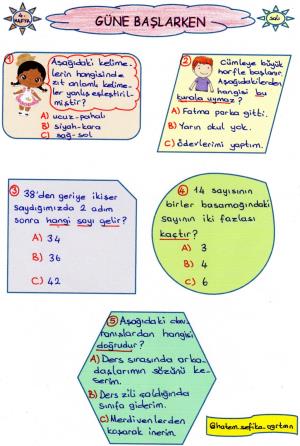 4.
HAFTA
GÜNE BAŞLARKEN
SALI
1
Aşağıdaki kelime-
lerin hangisinde
zıt anlamlı kelime-
ler yanlış eşleştiril-
miştir?
A) ucuz-pahalı
B) siyah-kara
C) sağ-sol
2
Cümleye büyük
harfle başlanır.
Aşağıdakilerden
hangisi bu
kurala uymaz?
A) Fatma parka gitti.
B) Yarın okul yok.
C) ödevlerimi yaptım.
3
38'den geriye ikişer
saydığımızda 2 adım
sonra hangi sayı gelir?
A) 34
B) 36
C) 42
4
14 sayısının
birler basamağındaki
sayının iki fazlası
kaçtır?
A) 3
B) 4
C) 6
5 Aşağıdaki dav-
ranışlardan hangisi
doğrudur?
A) Ders sırasında arka-
daşlarımın sözünü ke-
serim.
B) Ders zili çaldığında
sınıfa giderim.
C) Merdivenlerden
koşarak inerim.
@hatem_sefika_ogrtmn